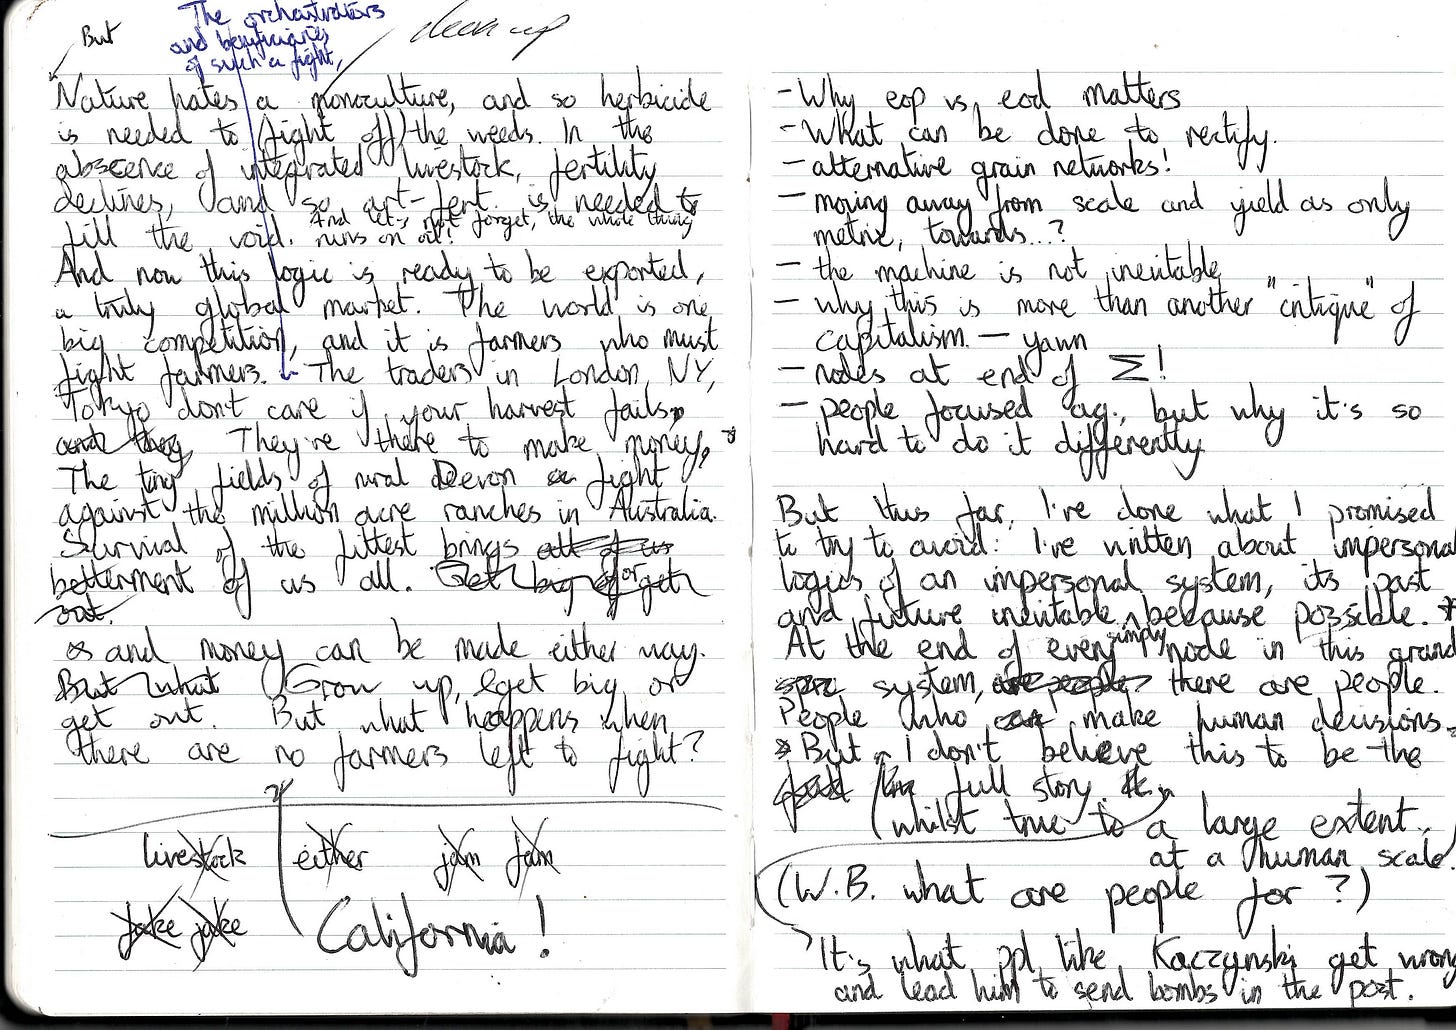 But
The orchestrators
and beneficiaries
of such a fight,
clean up
Nature hates a monoculture, and so herbicide
is needed to (fight off) the weeds. In the
abscence of integrated livestock, fertility
declines, and so art-fert. is needed to
fill the void. And let's not forget, the whole thing
runs on oil!
And now this logic is ready to be exported,
a truly global market. The world is one
big competition, and it is farmers who must
fight farmers. The traders in London, NY,
Tokyo don't care if your harvest fails,
and they They're there to make money,
The tiny fields of rural Devon fight
against the million acre ranches in Australia.
Survival of the fittest brings all of us
betterment of us all. Get big or get
out.
and money can be made either way.
But what Grow up, get big, or
get out. But what happens when
there are no farmers left to fight?
livestock either jam jam
jake jake
California!
- Why eop vs, eod matters
- What can be done to rectify.
- alternative grain networks!
- moving away from scale and yield as only
metric, towards...?
- the machine is not inevitable
- why this is more than another "critique" of
capitalism. - yawn
- nodes at end of Σ!
- people focused ag., but why it's so
hard to do it differently
But thus far, I've done what I promised
to try to avoid: I've written about impersonal
logics of an impersonal system, its past
and future inevitable simply because possible.
At the end of every node in this grand
system, are people. there are people.
People who can make human decisions.
But I don't believe this to be the
full story.
whilst true to a large extent.
at a human scale.
(W.B. what are people for?)
It's what ppl like Kaczynski get wrong
and lead him to send bombs in the post.